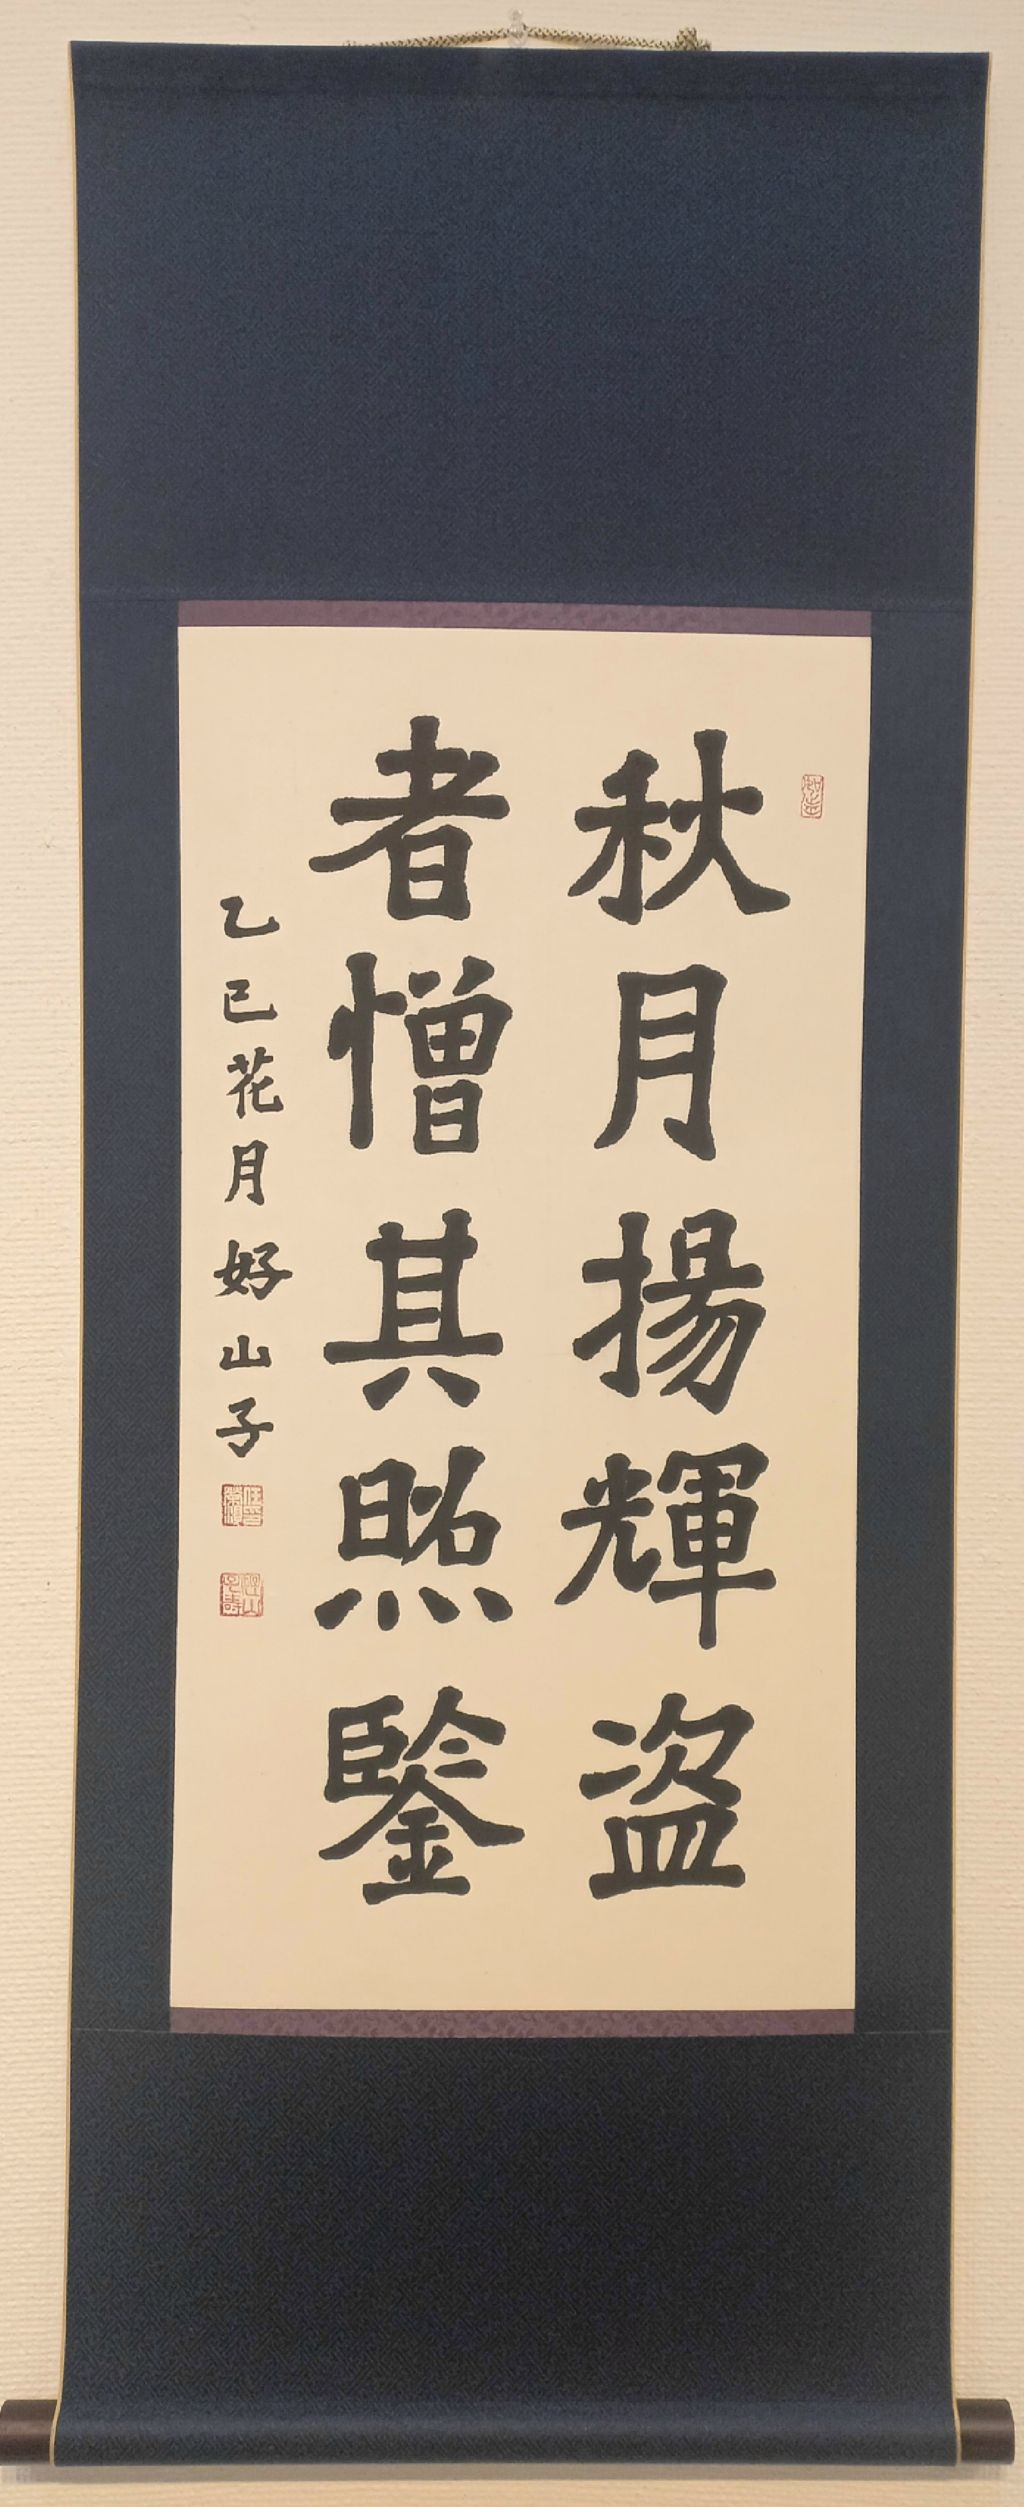 秋月揚輝盗
者憎其照鑒
乙巳花月好山子